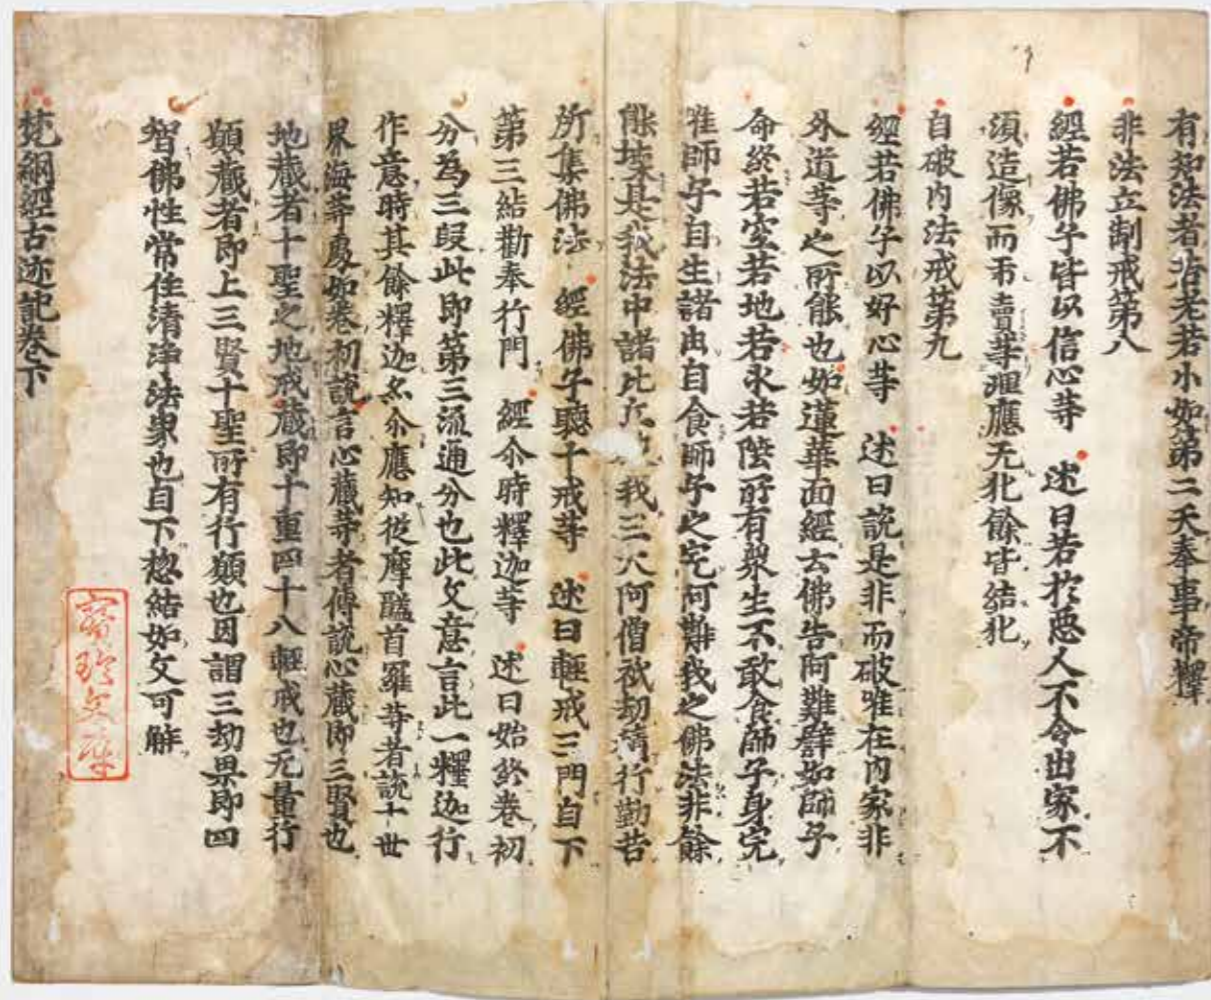 有知法者若老若小如第二天奉事帝釋
非法立制戒第八
經若佛子皆以信心䓁　述曰若於惡人不令出家不
須造像而市賣䓁理應无犯餘皆結犯
自破内法戒第九
經若佛子以好心䓁　述曰說是非而破唯在内家非
外道䓁之所能也如蓮華面經云佛告阿難譬如師子
命終若空若地若水若陸所有衆生不敢食師子身宍
唯師子自生諸虫自食師子之宍阿難我之佛法非餘
能壊是我法中諸比丘我三大阿僧祇劫積行勤苦
所集佛法　經佛子聽十戒䓁　述曰輕戒三門自下
第三結勸奉行門　經尒時釋迦䓁　述曰始終卷初
分為三段此即第三流通分也此文意言此一釋迦行
作意時其餘釋迦亦尒應知從摩醯首羅䓁者說十世
界海䓁處如卷初說言心藏䓁者傳說心藏即三賢也
地藏者十聖之地戒藏即十重四十八輕戒也无量行
願藏者即上三賢十聖所有行願也因謂三劫果即四
智佛性常住清淨法界也自下惣結如文可解
梵網經古迹記卷下